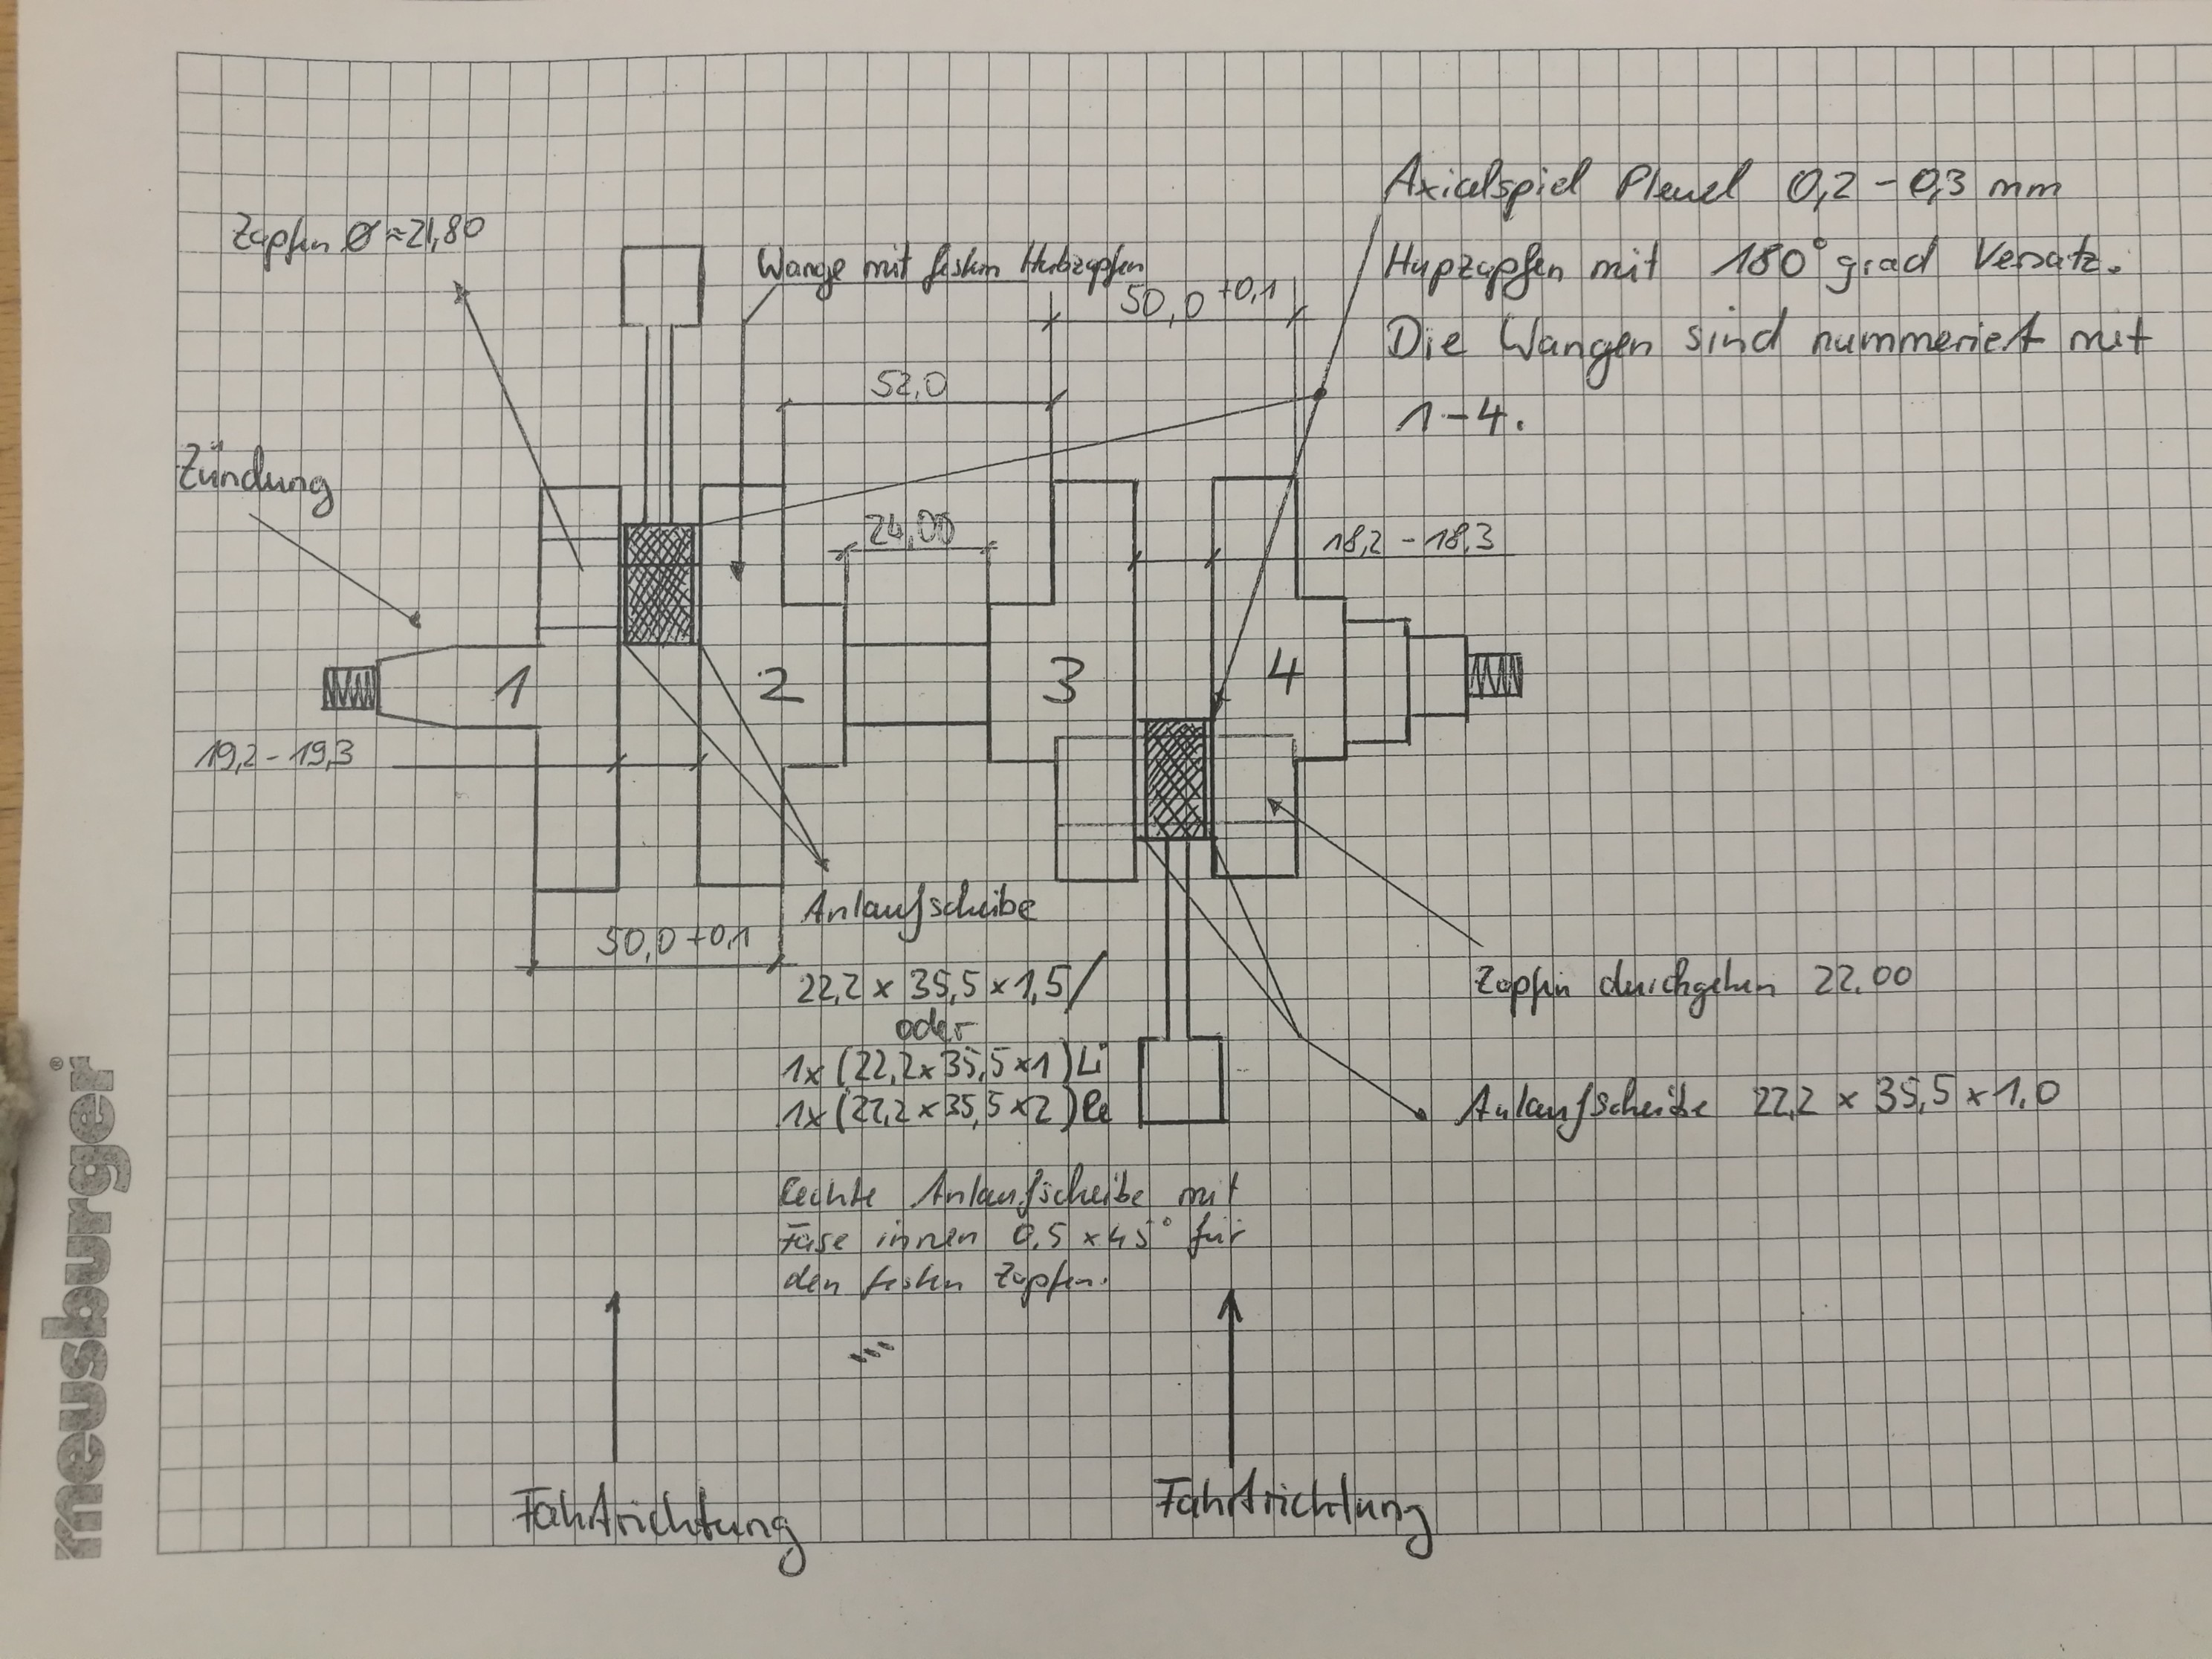 Axialspiel Pleuel 0,2 - 0,3 mm
Hupzapfen mit 180° grad Versatz.
Die Wangen sind nummeriert mit
1-4.
Zapfen Ø ≈ 21,80
Wange mit festem Hubzapfen
50,0 +0,1
52,0
Zündung
24,00
18,2 - 18,3
1
2
3
4
19,2 - 19,3
Anlaufscheibe
50,0 +0,1
22,2 x 35,5 x 1,5/
oder
1x (22,2 x 35,5 x 1) Li
1x (22,2 x 35,5 x 2) Re
Zapfen durchgehen 22.00
Anlaufscheibe 22,2 x 35,5 x 1,0
Rechte Anlaufscheibe mit
Fase innen 0,5 x 45° für
den festen Zapfen.
Fahrtrichtung
Fahrtrichtung
meusburger®